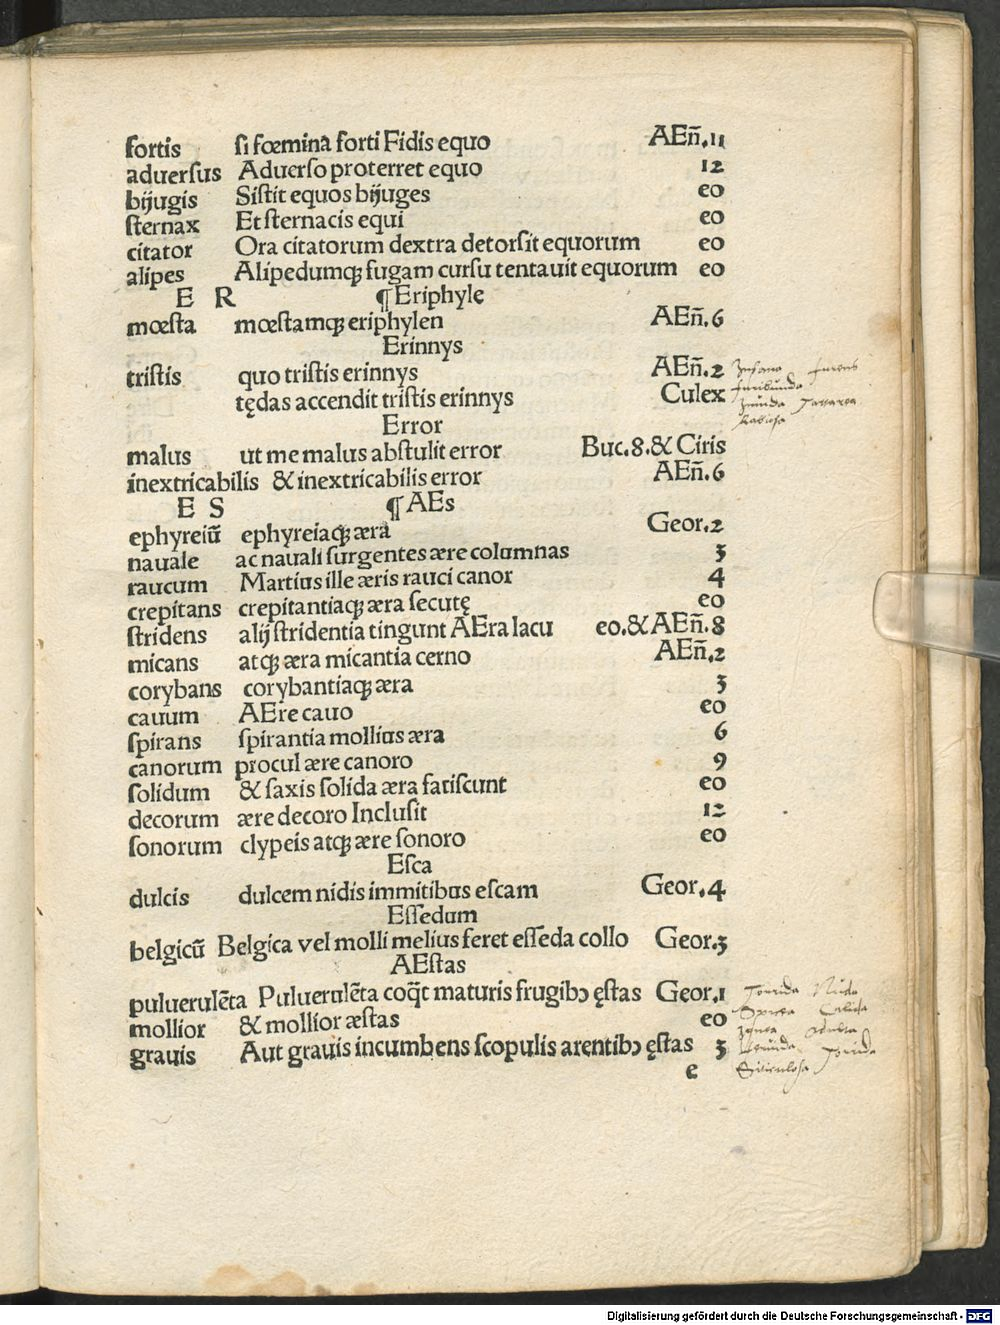 fortis ſi fœmina forti Fidis equo AEn̄.11
aduerſus Aduerſo proterret equo 12
bijugis Siſtit equos bijuges eo
ſternax Et ſternacis equi eo
citator Ora citatorum dextra detorſit equorum eo
alipes Alipedumqꝫ fugam curſu tentauit equorum eo
E R ¶Eriphyle
mœſta mœſtamqꝫ eriphylen AEn̄.6
Erinnys
triſtis quo triſtis erinnys AEn̄.2
tędas accendit triſtis erinnys Culex
Error
malus ut me malus abſtulit error Buc.8.& Ciris
inextricabilis & inextricabilis error AEn̄.6
E S ¶AEs
ephyreiū ephyreiaqꝫ æra Geor.2
nauale ac nauali ſurgentes ære columnas 3
raucum Martius ille æris rauci canor 4
crepitans crepitantiaqꝫ æra ſecutę eo
ſtridens alij ſtridentia tingunt AEra lacu eo.& AEn̄.8
micans atqꝫ æra micantia cerno AEn̄.2
corybans corybantiaqꝫ æra 3
cauum AEre cauo eo
ſpirans ſpirantia mollius æra 6
canorum procul ære canoro 9
ſolidum & ſaxis ſolida æra fatiſcunt eo
decorum ære decoro Incluſit 12
ſonorum clypeis atqꝫ ære ſonoro eo
Eſca
dulcis dulcem nidis immitibus eſcam Geor.4
Eſſedum
belgicū Belgica vel molli melius feret eſſeda collo Geor.3
AEſtas
puluerulēta Puluerulēta coq̄t maturis frugibꝰ ęſtas Geor.1
mollior & mollior æſtas eo
grauis Aut grauis incumbens ſcopulis arentibꝰ ęſtas 3
e
Inſana furens
furibunda
Tartarea
Rabioſa
Torrida Nuda
Spicea Calida
Siticuloſa
Digitalisierung gefördert durch die Deutsche Forschungsgemeinschaft - DFG